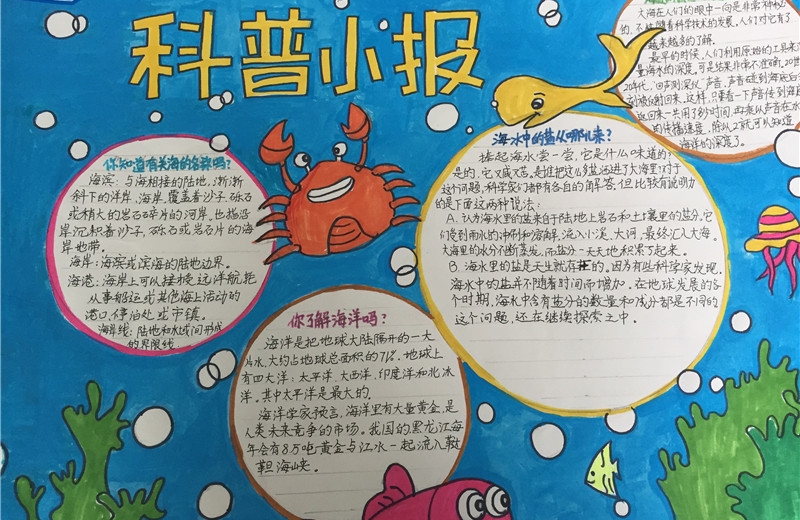 科普小报
你知道有关海的名称吗?
海滨：与海相接的陆地,渐渐
斜下的洋岸、海岸,覆盖着沙子、砾石
或稍大的岩石碎片的河岸,也指沿
岸沉积着沙子、砾石或岩石片的海
岸也带。
海岸：海滨或滨海的陆地边界。
海港：海岸上可从接接远洋航轮
从事船运或其他海上活动的
港口、停泊处或市镇。
海岸线：陆地和水域间形成
的界限线
你了解海洋吗?
海洋是把地球大陆隔开的一大
片水,大约占地球总面积的71%。地球上
有四大洋：太平洋、大西洋、印度洋和北冰
洋。其中太平洋是最大的。
海洋学家预言,海洋里有大量黄金,是
人类未来竞争的市场。我国的黑龙江每
年会有8万吨黄金与江水一起流入鞑
靼海峡。
海水中的盐从哪儿来?
捧起海水尝一尝,它是什么味道的?
是的,它又咸又苦。是谁把这么多盐送进了大海里?对于
这个问题,科学家们都有各自的角解答,但比较有说明力
的是下面这两种说法：
A、认为海水里的盐来自于陆地上岩石和土壤里的盐分,它
们受到雨水的冲刷和溶解,流入小溪、大河,最终汇入大海。
大海里的水分不断蒸发,而盐分一天天地积累了起来。
B、海水里的盐是天生就有的。因为有些科学家发现,
海水中的盐并不随着时间而增加。在地球发展的各
个时期,海水中含有盐分的数量和成分都是不同的
这个问题,还在继续探索之中。
大海在人们的眼中一向是非常神秘
的,不过随着科学技术的发展,人们对它有了
越来越多的了解。
最早的时候,人们利用原始的工具来
量海水的深度。可是结果非常不准确。20世
20年代,回声测深仪,声音,声音碰到海底后
到被反射回来,这样,只要看一下声音传到海底
返回来一共用了多少时间,再乘以声音在水
的传播速度,除以2就可以知道
海洋的深度了。